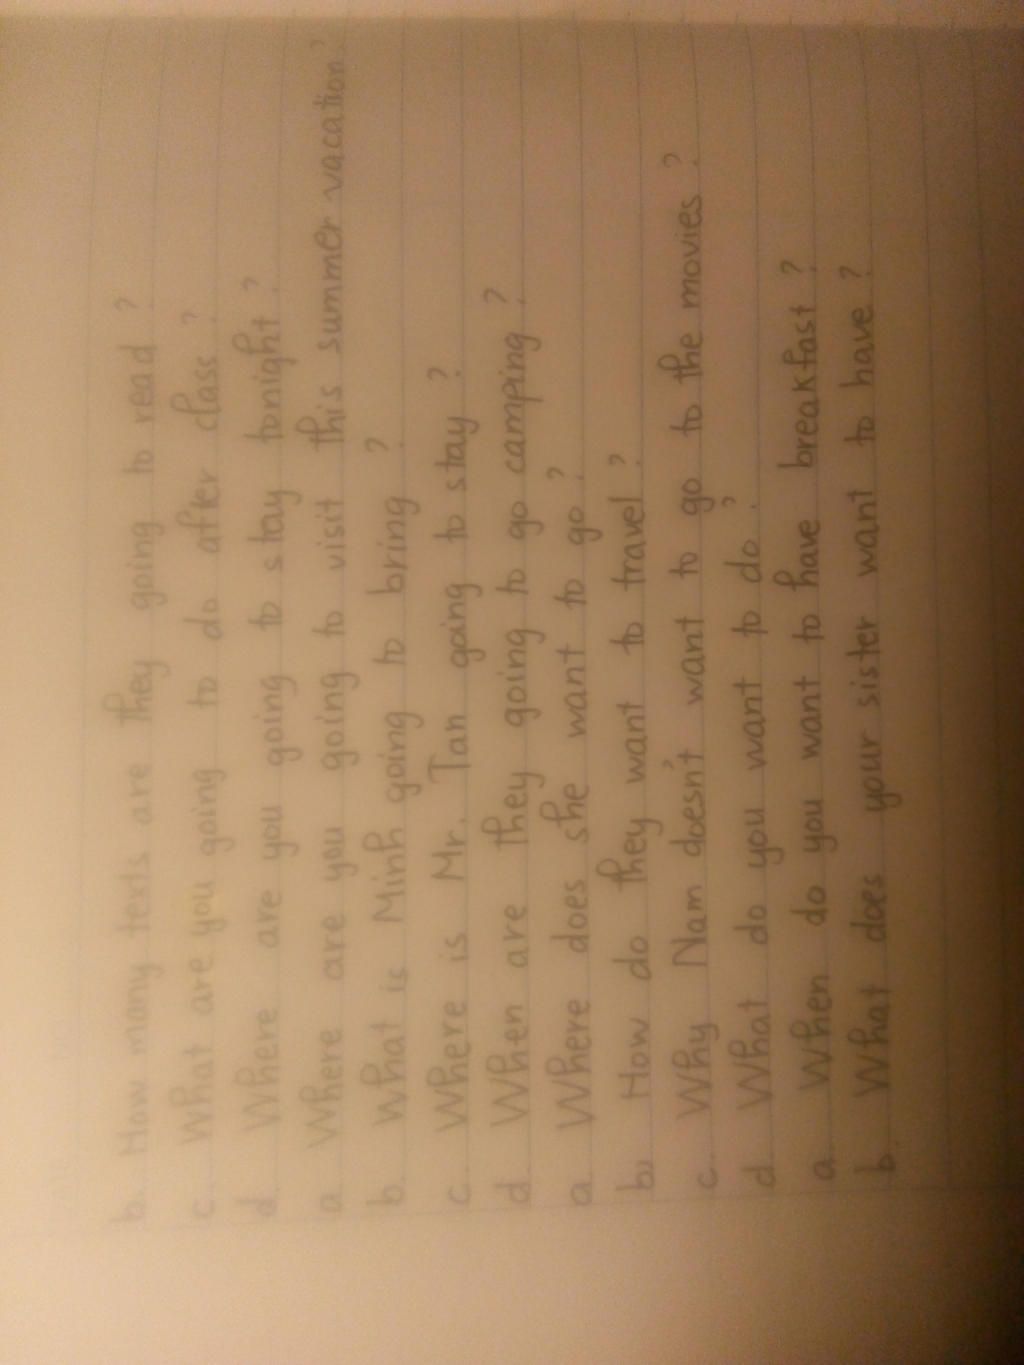 b. How many texts are they going to read ?
c. What are you going to do after class ?
d. Where are you going to stay tonight ?
a. Where are you going to visit this summer vacation ?
b. What is Minh going to bring ?
c. Where is Mr. Tan going to stay ?
d. When are they going to go camping ?
a. Where does she want to go ?
b. How do they want to travel ?
c. Why Nam doesn't want to go to the movies ?
d. What do you want to do ?
a. When do you want to have breakfast ?
b. What does your sister want to have ?